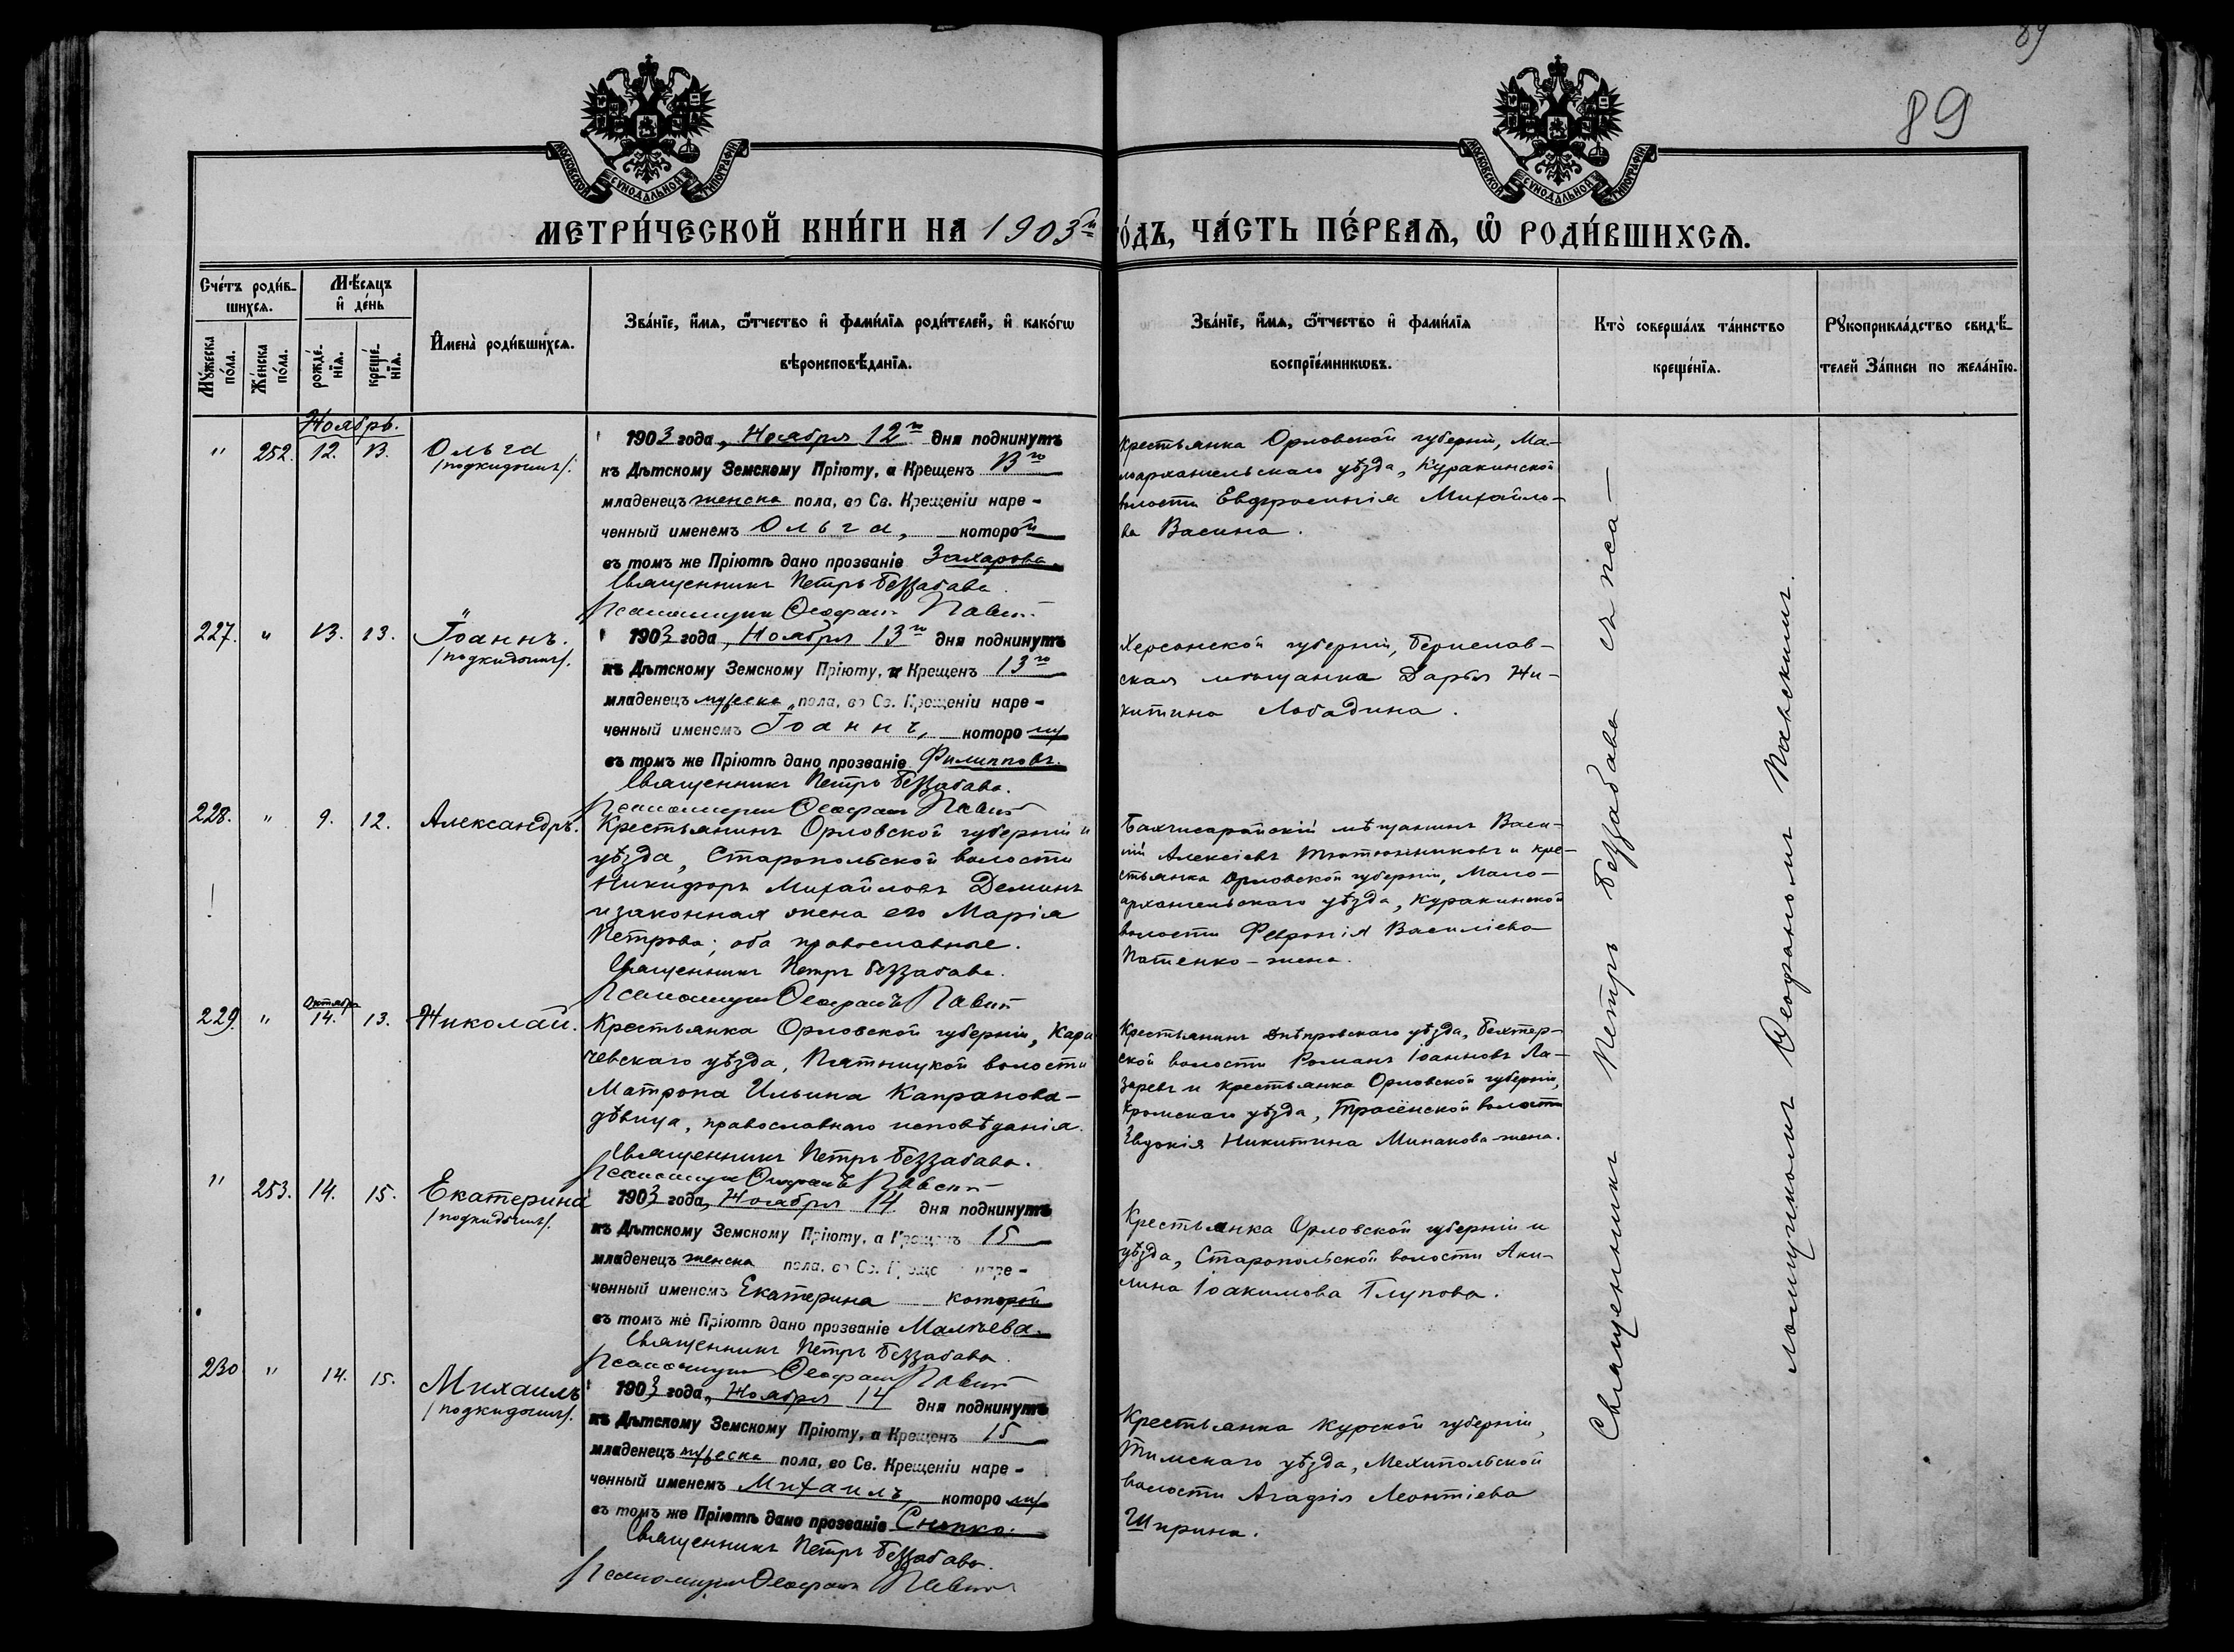 89
89
МОСКОВСКОЙ СѴНОДАЛЬНОЙ ТИПОГРАФІИ
МОСКОВСКОЙ СѴНОДАЛЬНОЙ ТИПОГРАФІИ
МЕТРИ́ЧЕСКОЙ КНИ́ГИ НА 1903й
О́ДЪ, ЧА́СТЬ ПЕ́РВАѦ, Ѽ РОДИ́ВШИХСѦ.
Сче́тъ роди́в-
шихся.
Мѣ́сяцъ
и҆ де́нь
Мꙋ́жеска по́ла.
Же́нска по́ла.
рожде́-нїѧ.
креще́-нїѧ.
И҆мена̀ роди́вшихся.
Зва́нїе, и҆́мя, ѻ҆́тчество и҆ фами́лїя роди́телей, и҆ како́гѡ
вѣроисповѣ́данїя.
Зва́нїе, и҆́мя, ѻ҆́тчество и҆ фами́лїя
воспрїе́мникѡвъ.
Кто̀ соверша́лъ та́инство
креще́нїя.
Рꙋкоприкла́дство свидѣ́-
телей За́писи по жела́нїю.
Ноябрь.
" 252. 12. 13. Ольга
/подкидышъ/.
1903 года, Ноября 12го дня подкинутъ
къ Дѣтскому Земскому Пріюту, а Крещенъ 13го
младенецъ женска пола, во Св. Крещеніи наре-
ченный именемъ Ольга, которой
въ томъ же Пріютѣ дано прозваніе Захарова.
Священникъ Петръ Беззабава.
Псаломщикъ Ѳеофанъ
Крестьянка Орловской губерніи, Ма-
лоархангельскаго уѣзда, Куракинской
волости Евфросинія Михайло-
ва Васина.
227. " 13. 13. Іоаннъ.
/подкидышъ/.
1903 года, Ноября 13го дня подкинутъ
къ Дѣтскому Земскому Пріюту, и Крещенъ 13го
младенецъ мужеска пола, во Св. Крещеніи наре-
ченный именемъ Іоаннъ, которому
въ томъ же Пріютѣ дано прозваніе Филипповъ.
Священникъ Петръ Беззабава.
Псаломщикъ Ѳеофанъ
Херсонской губерніи, Берислав-
ская мѣщанка Дарья Ни-
китина Лободина.
228. " 9. 12. Александръ.
Крестьянинъ Орловской губерніи и
уѣзда, Старопольской волости
Никифоръ Михайловъ Деминъ
и законная жена его Марія
Петрова; оба православные.
Священникъ Петръ Беззабава.
Псаломщикъ Ѳеофанъ
Бахчисарайскій мѣщанинъ Васи-
лій Алексіевъ Тютюнниковъ и кре-
стьянка Орловской губерніи, Мало-
архангельскаго уѣзда, Куракинской
волости Февронія Василіева
Патенко-жена.
229. " Октября 14. 13. Николай.
Крестьянка Орловской губерніи, Кара
чевскаго уѣзда, Пятницкой волости
Матрона Ильина Капранова-
дѣвица, православнаго исповѣданія.
Священникъ Петръ Беззабава.
Псаломщикъ Ѳеофанъ
Крестьянинъ Днѣпровскаго уѣзда, Бехтер-
ской волости Романъ Іоанновъ Ла-
заревъ и крестьянка Орловской губерніи,
Кромскаго уѣзда, волости
Евдокія Никитина Минакова-жена.
" 253. 14. 15. Екатерина
/подкидышъ/.
1903 года, Ноября 14 дня подкинутъ
къ Дѣтскому Земскому Пріюту, а Крещенъ 15
младенецъ женска пола, во Св. Крещеніи наре-
ченный именемъ Екатерина которой
въ томъ же Пріютѣ дано прозваніе Мальева.
Священникъ Петръ Беззабава.
Псаломщикъ Ѳеофанъ
Крестьянка Орловской губерніи и
уѣзда, Старопольской волости Аки-
лина Іоакимова Глупова.
230 " 14. 15. Михаилъ
/подкидышъ/.
1903 года, Ноября 14 дня подкинутъ
къ Дѣтскому Земскому Пріюту, а Крещенъ 15
младенецъ мужеска пола, во Св. Крещеніи наре-
ченный именемъ Михаилъ, которому
въ томъ же Пріютѣ дано прозваніе
Священникъ Петръ Беззабава.
Псаломщикъ Ѳеофанъ
Крестьянка Курской губерніи,
Тимскаго уѣзда, волости Агафія Леонтіева
Ширина.
Священникъ Петръ Беззабава съ пса-
ломщикомъ Ѳеофаномъ Павскимъ.